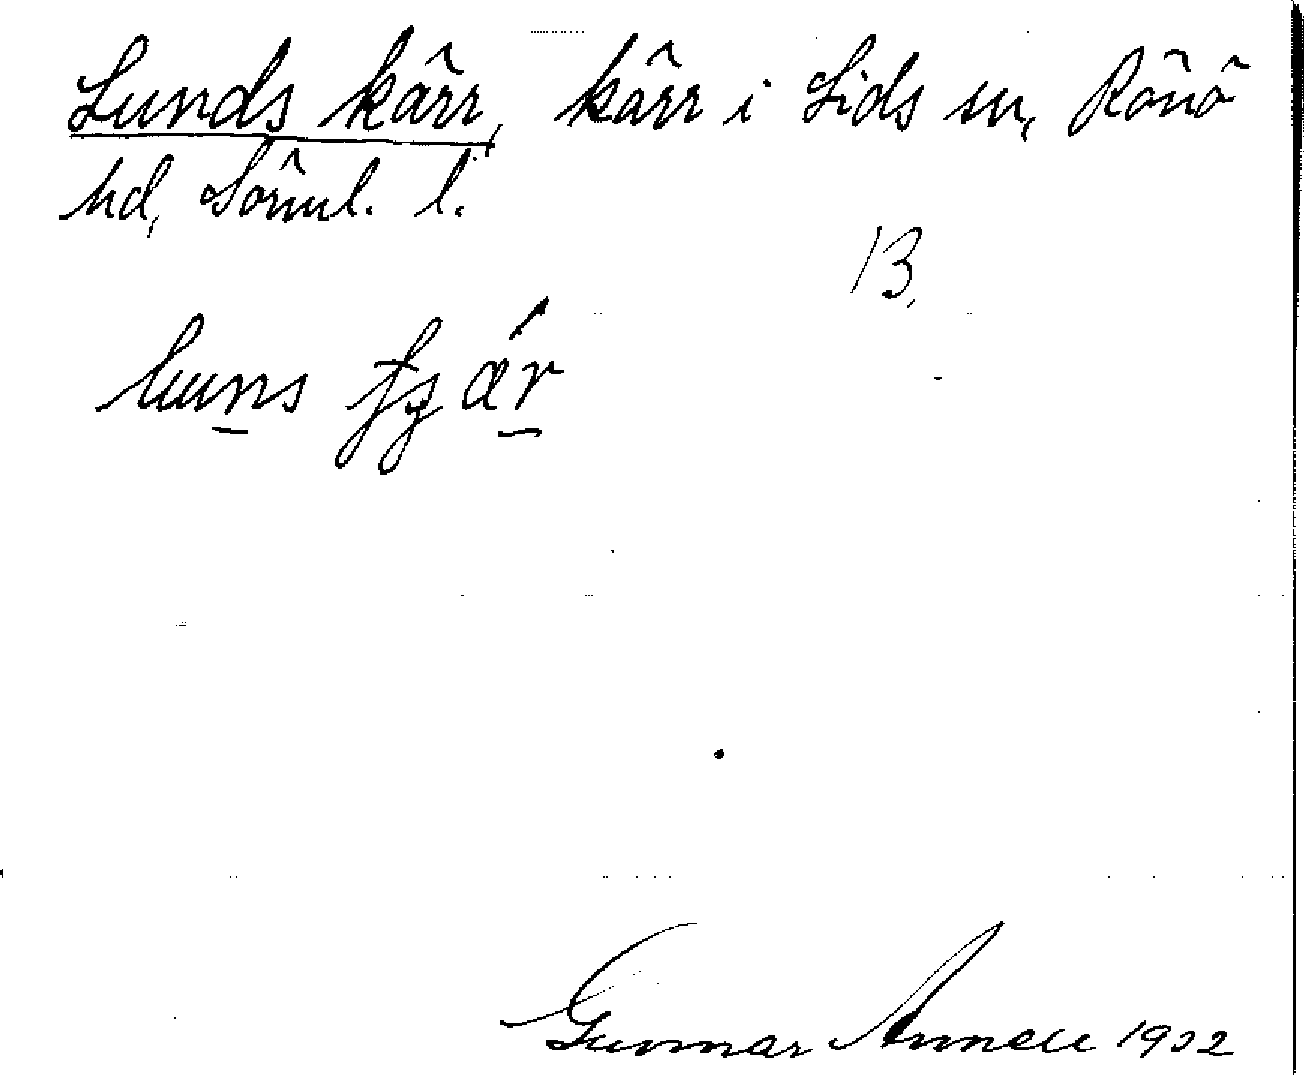 Lunds kärr, kärr i Lids sn, Rönö
hd, Sörml. l.
13.
luns
Gunnar Annell 1932